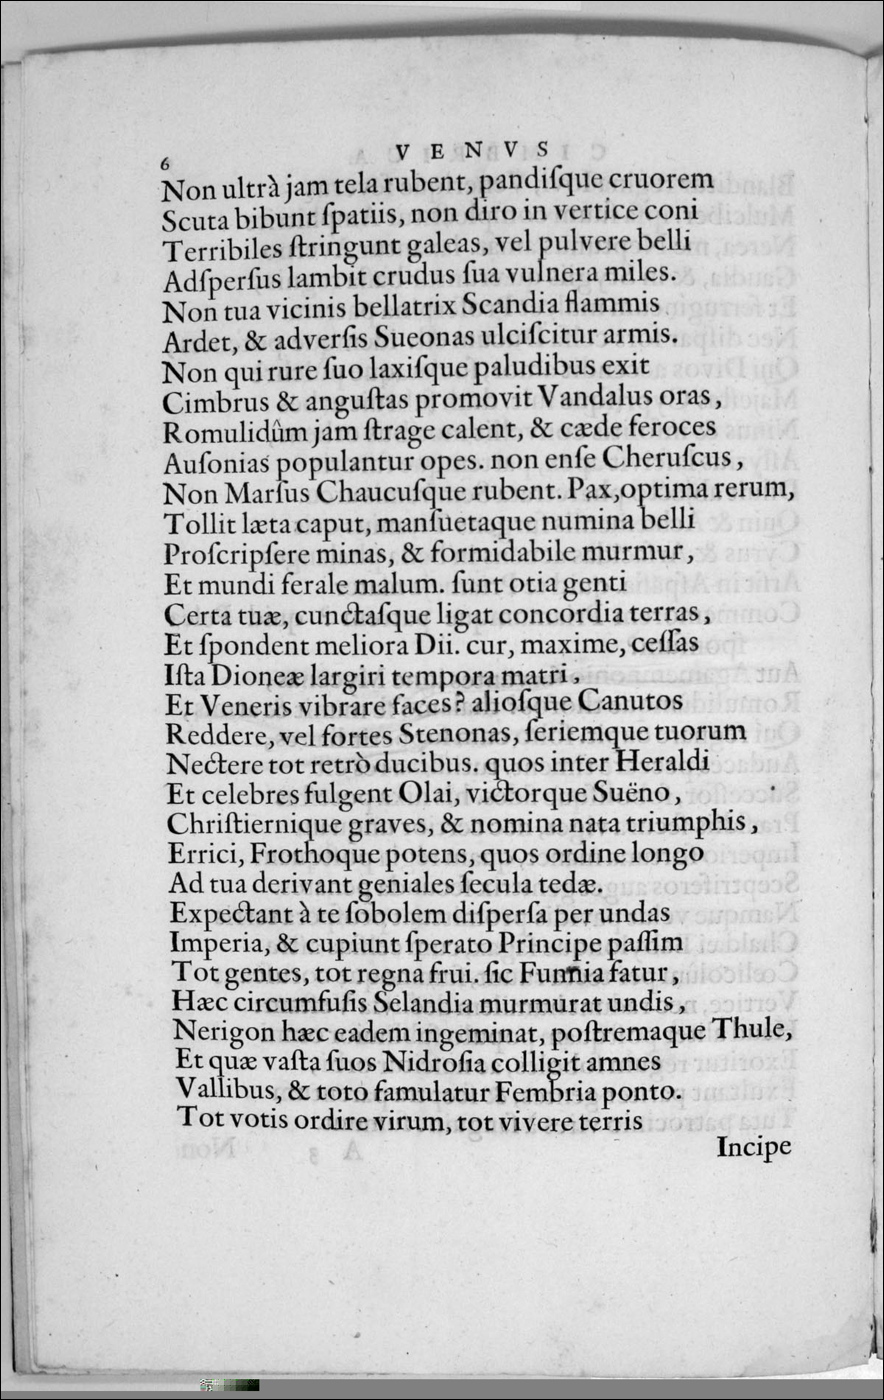 6
V E N V S
Non ultrà jam tela rubent, pandiſque cruorem
Scuta bibunt ſpatiis, non diro in vertice coni
Terribiles ſtringunt galeas, vel pulvere belli
Adſperſus lambit crudus ſua vulnera miles.
Non tua vicinis bellatrix Scandia flammis
Ardet, & adverſis Sueonas ulciſcitur armis.
Non qui rure ſuo laxiſque paludibus exit
Cimbrus & anguſtas promovit Vandalus oras,
Romulidûm jam ſtrage calent, & cæde feroces
Auſonias populantur opes. non enſe Cheruſcus,
Non Marſus Chaucuſque rubent. Pax, optima rerum,
Tollit læta caput, manſuetaque numina belli
Proſcripſere minas, & formidabile murmur,
Et mundi ferale malum. ſunt otia genti
Certa tuæ, cunctaſque ligat concordia terras,
Et ſpondent meliora Dii. cur, maxime, ceſſas
Iſta Dioneæ largiri tempora matri,
Et Veneris vibrare faces? alioſque Canutos
Reddere, vel fortes Stenonas, ſeriemque tuorum
Nectere tot retrò ducibus. quos inter Heraldi
Et celebres fulgent Olai, victorque Suëno,
Chriſtiernique graves, & nomina nata triumphis,
Errici, Frothoque potens, quos ordine longo
Ad tua derivant geniales ſecula tedæ.
Expectant à te ſobolem diſperſa per undas
Imperia, & cupiunt ſperato Principe paſſim
Tot gentes, tot regna frui. ſic Funnia fatur,
Hæc circumfuſis Selandia murmurat undis,
Nerigon hæc eadem ingeminat, poſtremaque Thule,
Et quæ vaſta ſuos Nidroſia colligit amnes
Vallibus, & toto famulatur Fembria ponto.
Tot votis ordire virum, tot vivere terris
Incipe